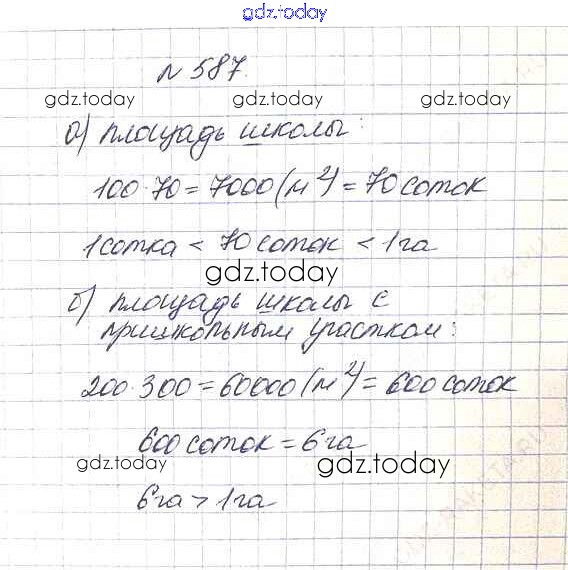 gdz.today
№ 587.
gdz.today gdz.today gdz.today
а) площадь школы:
100·70=7000(м²)=70 соток
1 сотка < 70 соток < 1 га
gdz.today
б) площадь школы с
пришкольным участком:
200·300=60000(м²)=600 соток
600 соток = 6 га
gdz.today gdz.today
6 га > 1 га